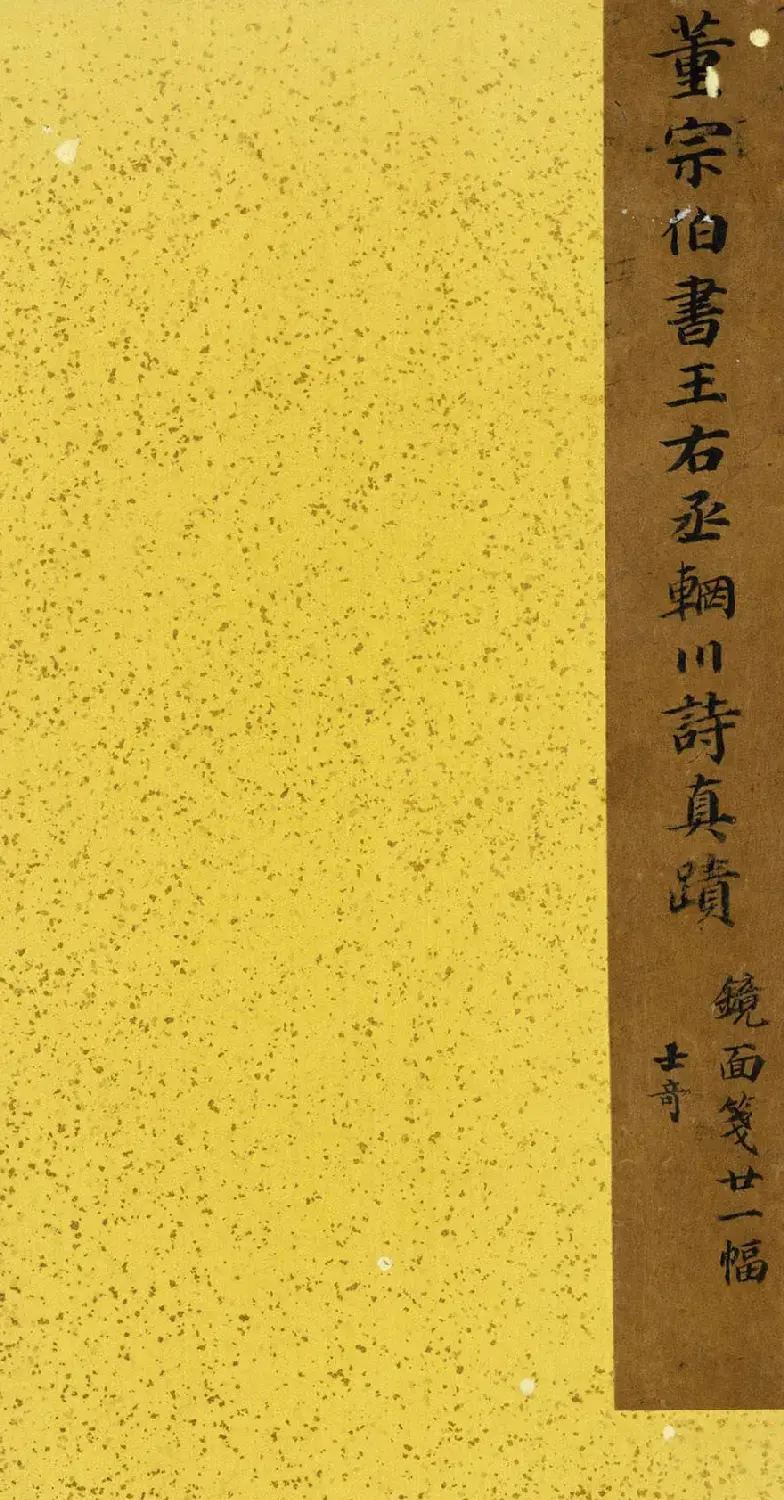 董宗伯書王右丞輞川詩真蹟
鏡面箋廿一幅
士奇